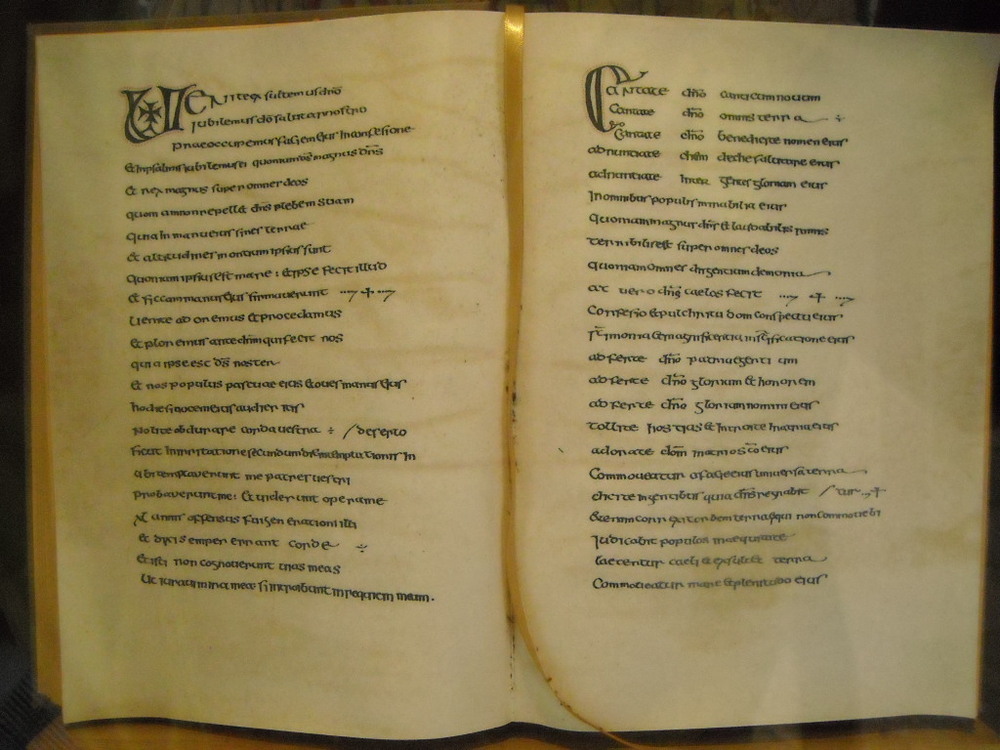 VENITE exsultemus dño
jubilemus dō salutari nostro
praeoccupemus faciem ejus in confessione
Et in psalmis jubilemus ei quoniam dō magnus dñs
et rex magnus super omnes deos
quoniam non repellet dñs plebem suam
quia in manu eius fines terrae
et altitudines montium ipsius sunt
quoniam ipsius est mare : et ipse fecit illud
et siccam manus ejus firmaverunt
Venite adoremus et procedamus
et ploremus ante dñm qui fecit nos
quia ipse est dS noster
et nos populus pascuae eius et oves manus ejus
hodie si vocem eius audieritis
nolite obdurare corda vestra ÷ / deserto
sicut in inritatione secundum diem temptationis in
ubi temptaverunt me patres vestri
probaverunt me : et viderunt opera me
annis offensus fui gen erationi illi
et dixi semper errant corde ÷
et isti non cognoverunt vias meas
Ut juravi in ira mea si introibunt in requiem meam.
CANTATE dño canticum novum
Cantate dño omnis terra ÷
Cantate dño benedicite nomen eius
adnuntiate diem de die salutare eius
adnuntiate inter gentes gloriam eius
In omnibus populis mirabilia eius
quoniam magnus dñs et laudabilis nimis
terribilis est super omnes deos
quoniam omnes dii gentium demonia
at vero dñs caelos fecit
Confessio et pulchritudo in conspectu eius
scimonia et magnificentia in scificatione eius
adferte dño patriae gentium
adferte dño gloriam et honorem
adferte dño gloriam nomini eius
tollite hostias et introite in atria eius
adorate dñm in atrio sco eius
Commoveatur a facie eius universa terra
dicite in gentibus quia dñs regnabit / tur
Etenim correxit orbem terrae qui non commovebi
Judicabit populos in aequitate
laetentur caeli et exsultet terra
Commoveatur mare et plenitudo eius